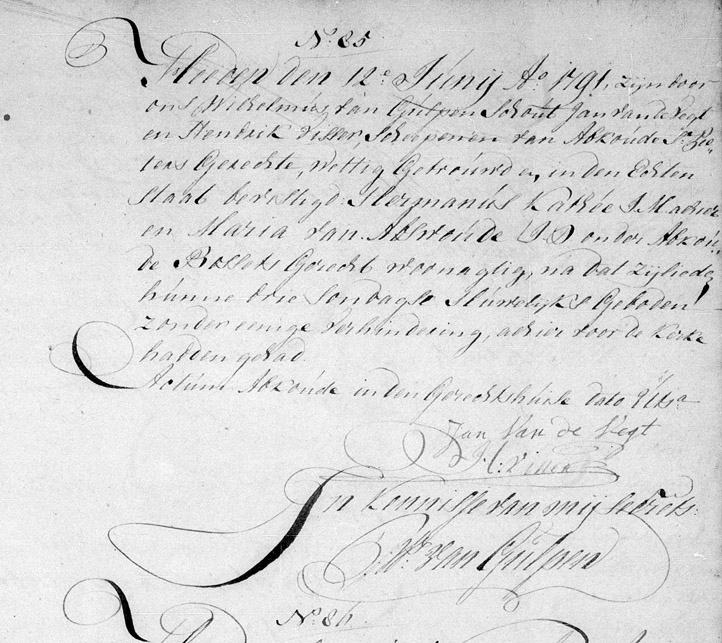 No. 85
Heeden den 12e Junij Ao 1791, zijn door
ons Wilhelmus van Gulpen Schout Jan van de Vegt
en Hendrik Visser, Scheepenen van Abkoude St. Pie,,
ters Gerechte, Wettig Getrouwd en, in den Echten
Staat bevestigd Hermanus J.M. alhier
en Maria van Abkoude J.D onder Abkou,,
de Gerecht woonagtig, na dat zijlieden
hunne drie Sondagse Huwelyks Geboden
zonder eenige verhindering, alhier voor de kerke
hadden gehad
Actum Abkoude in den Gerechtshuise dato
Jan Van de Vegt
H: Visser
In kennisse van mij Secrets.
W. van Gulpen
No. 86.